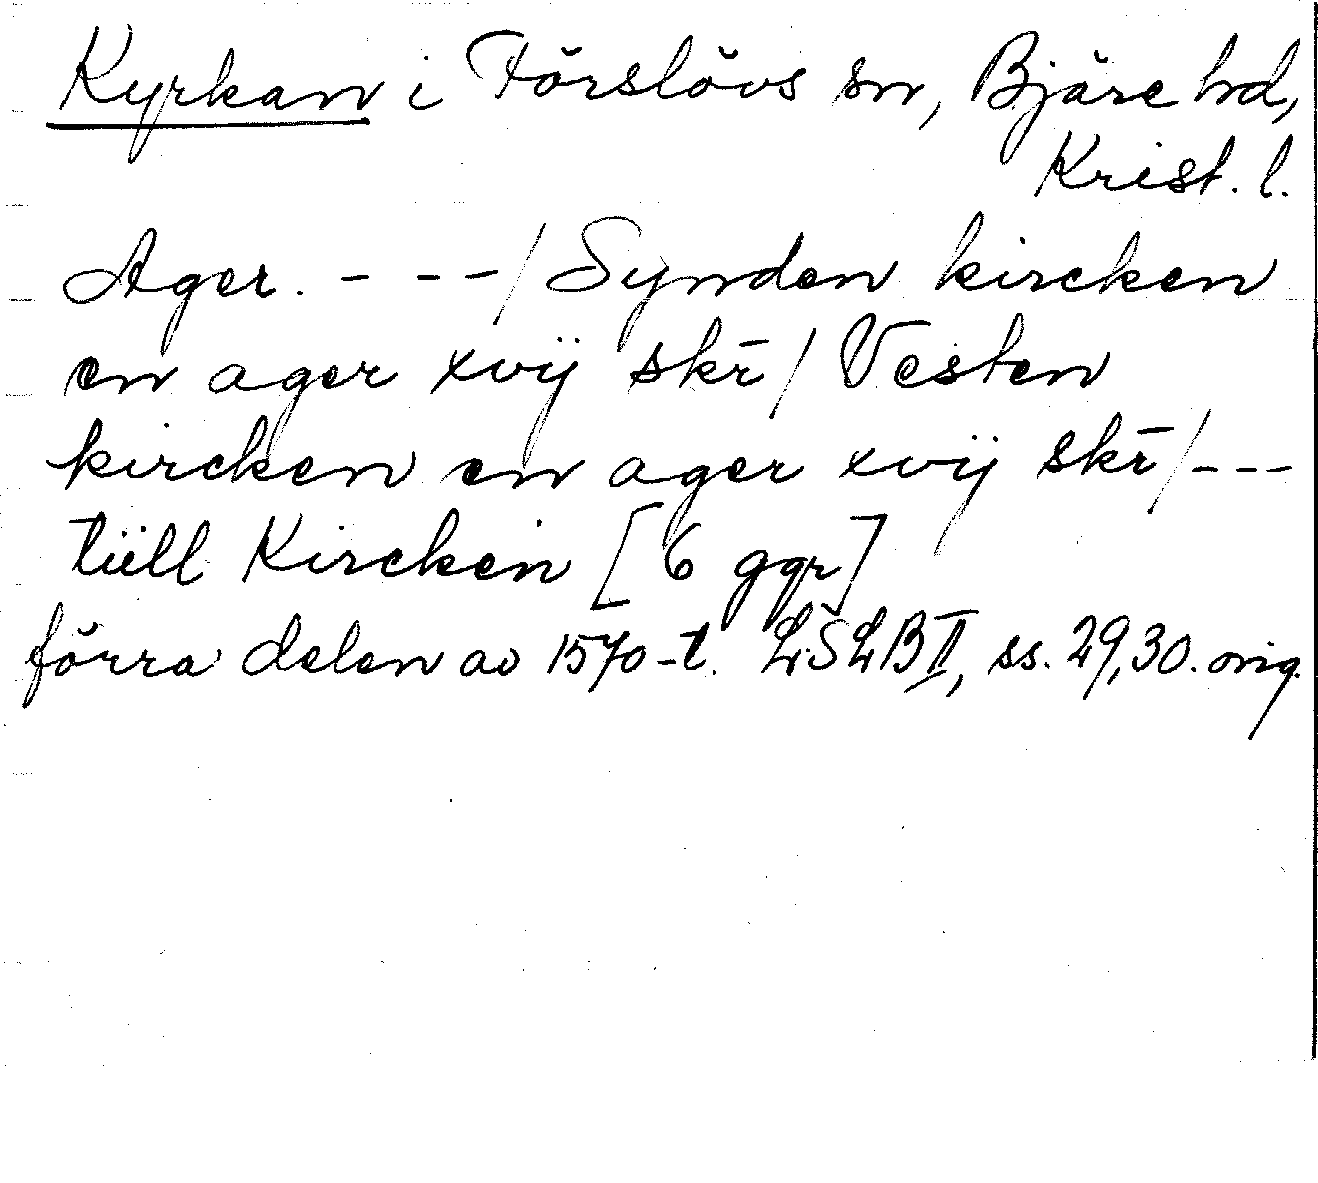 Kyrkan i Förslövs sn, Bjäre hd,
Krist. l.
Ager. - - - / Synden kircken
en ager xvij skr̄ / Vesten
kircken en ager xvij skr̄ / - - -
tiill Kircken [6 ggr]
förra delen av 1570-t. LSLB II, ss. 29, 30. orig.